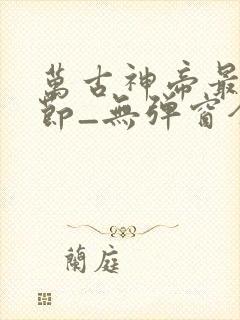 萬古神帝最
節_無彈窗
蘭庭